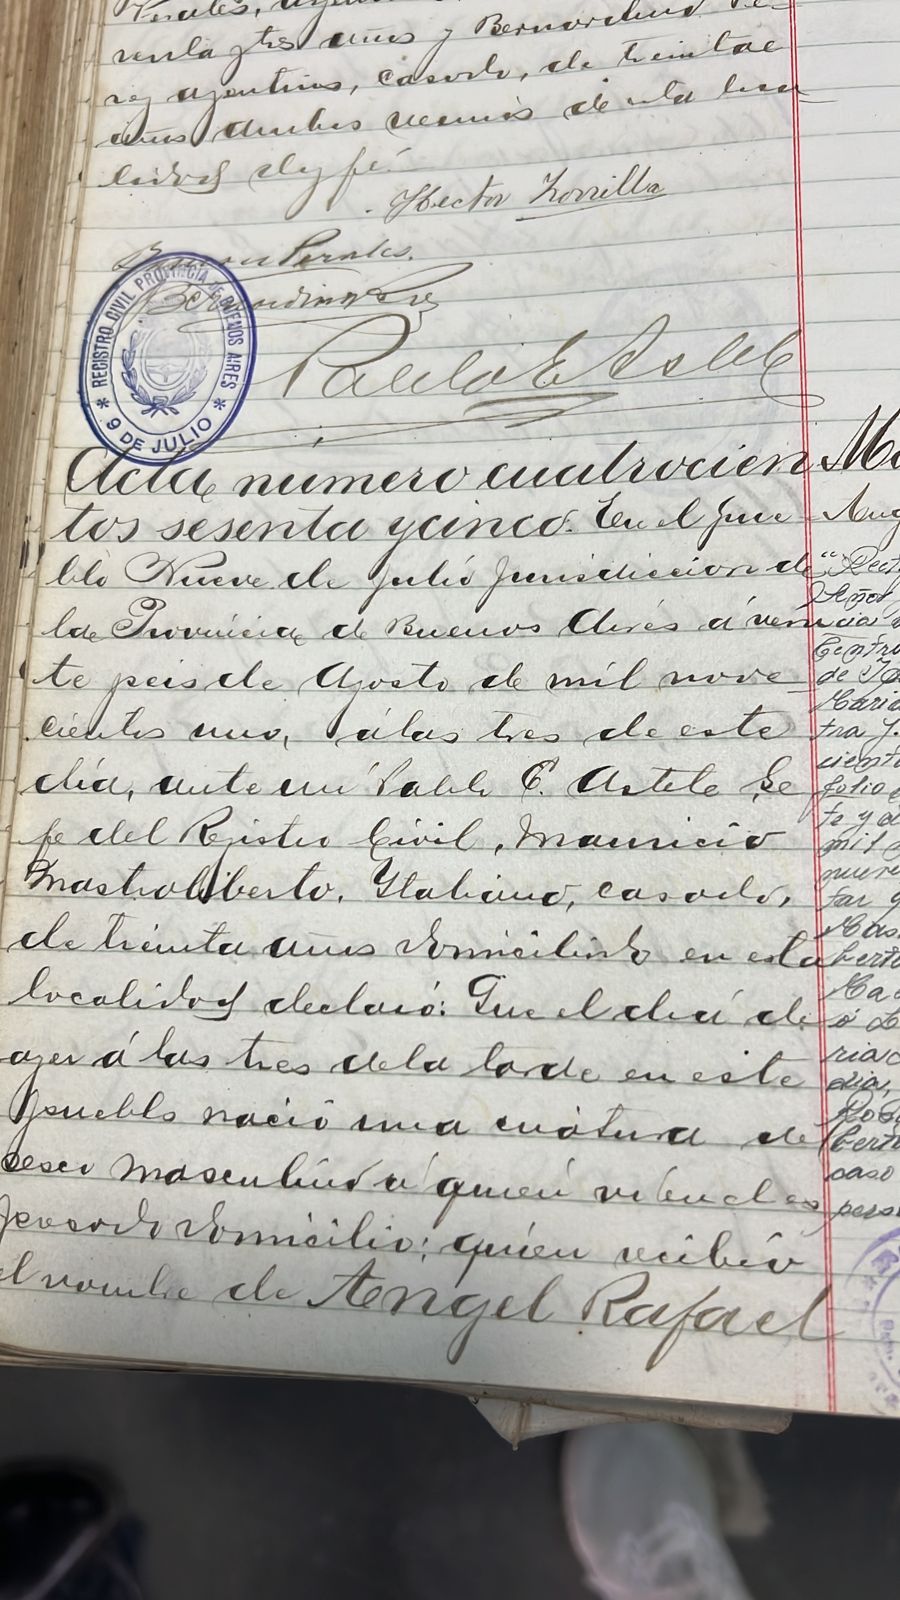 Perales, argen
renta y tres años y Bernardino Pe
rez argentino, casado, de treinta
años ambos vecinos de esta loca
lidad doy fé.
Hector Zorrilla
Perales.
Bernardino Perez
Pablo E Astete
REGISTRO CIVIL PROVINCIA DE BUENOS AIRES
* 9 DE JULIO *
Acta número cuatrocien
tos sesenta y cinco. En el pue
blo Nueve de Julio jurisdiccion de
la Provincia de Buenos Aires á vein
te seis de Agosto de mil nove
cientos uno, á las tres de este
día, ante mí Pablo E. Astete Je
fe del Registro Civil, Mauricio
Mastroliberto, Ytaliano, casado,
de treinta años domiciliado en esta
localidad declaró: Que el día de
ayer á las tres de la tarde en este
pueblo nació una criatura de
sexo masculino á quien ví en el es
presado domicilio; quien recibió
el nombre de Angel Rafael
Ang
"Rect
Señor
Centra
de
Maria
tra
ciento
folio
te y
mil
nueve
far
Mas
berto
ó
ria
dia,
berto
caso
perso